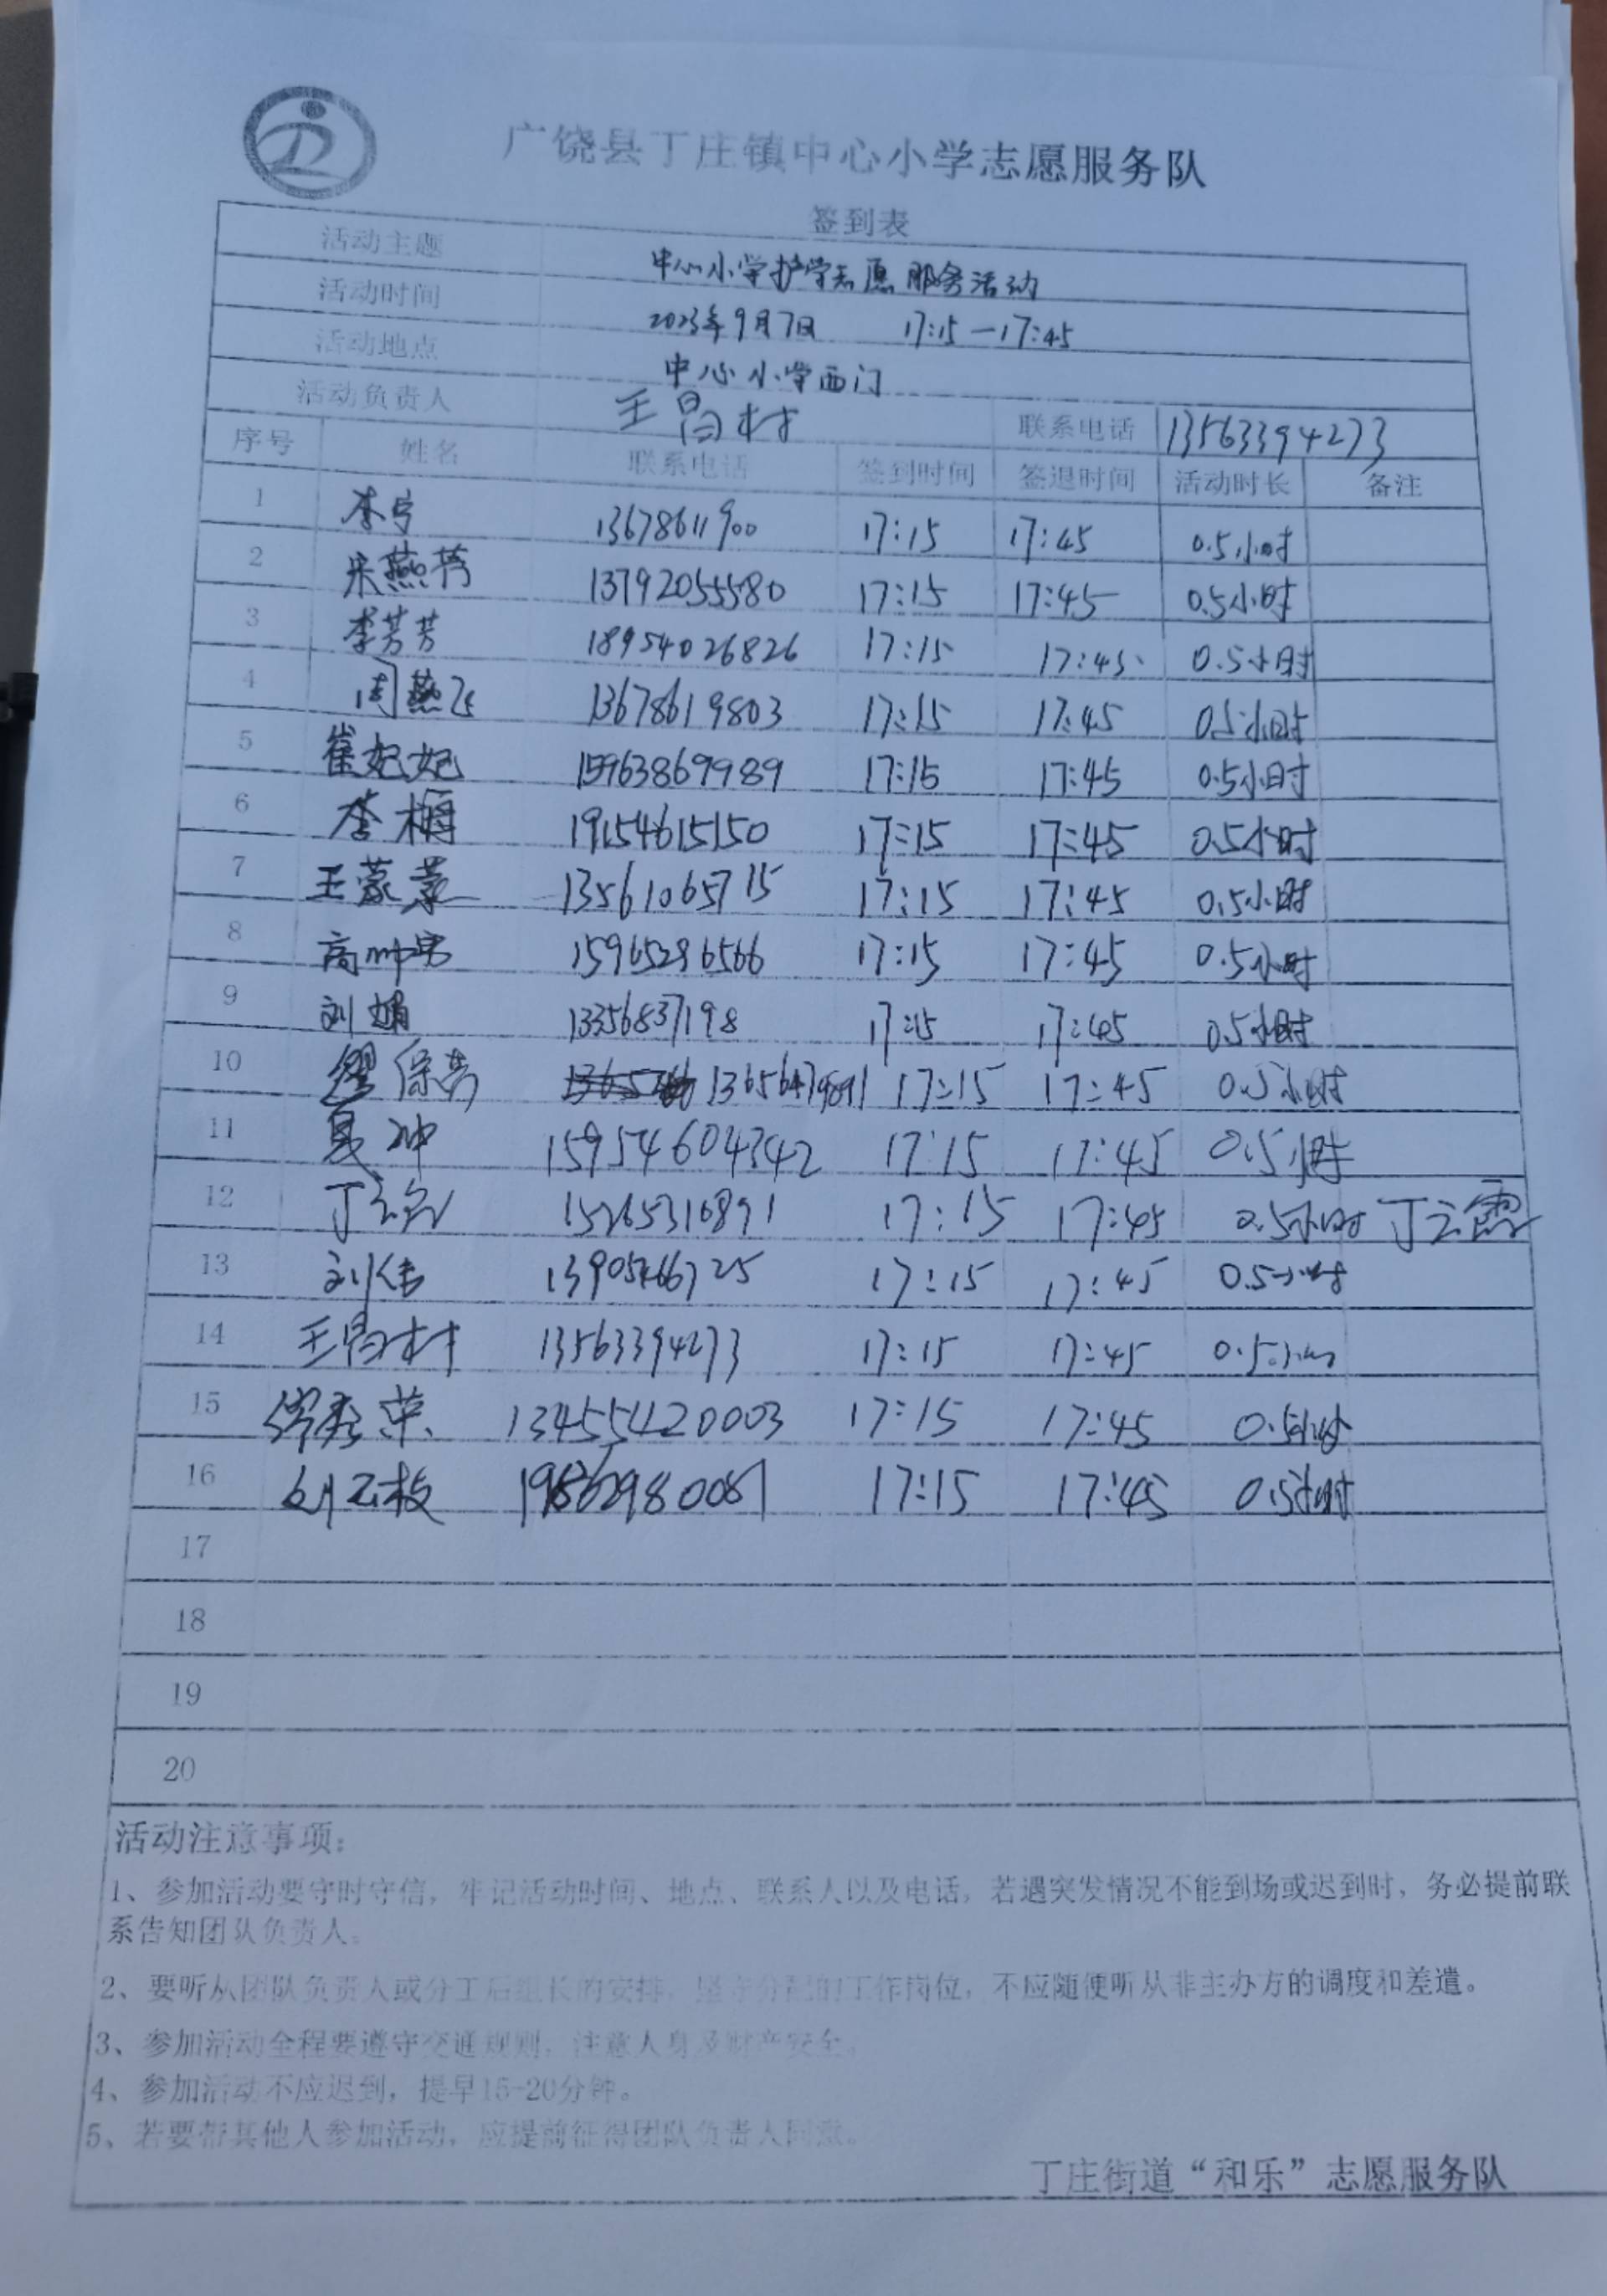 广饶县丁庄镇中心小学志愿服务队
签到表
活动主题 中心小学护学志愿服务活动
活动时间 2023年9月7日 17:15—17:45
活动地点 中心小学西门
活动负责人 王昌村 联系电话 13563394273
序号 姓名 联系电话 签到时间 签退时间 活动时长 备注
1 李宁 13678611900 17:15 17:45 0.5小时
2 宋燕芳 13792055580 17:15 17:45 0.5小时
3 李芳芳 18954026826 17:15 17:45 0.5小时
4 周燕飞 13678619803 17:15 17:45 0.5小时
5 崔妃妃 15963869989 17:15 17:45 0.5小时
6 李梅 19154615150 17:15 17:45 0.5小时
7 王蒙蒙 13561065715 17:15 17:45 0.5小时
8 高帅 15965286566 17:15 17:45 0.5小时
9 刘娟 13356837198 17:15 17:45 0.5小时
10 保芳 13656479891 17:15 17:45 0.5小时
11 冲 159546604342 17:15 17:45 0.5小时
12 丁云 15265316891 17:15 17:45 0.5小时 丁云霞
13 刘伟 17:15 17:45 0.5小时
14 王昌村 13563394273 17:15 17:45 0.5小时
15 荣 13455420003 17:15 17:45 0.5小时
16 刘云枝 17:15 17:45 0.5小时
17
18
19
20
活动注意事项:
1、参加活动要守时守信，牢记活动时间、地点、联系人以及电话，若遇突发情况不能到场或迟到时，务必提前联
系告知团队负责人。
2、要听从团队负责人或分工后组长的安排，坚守分配的工作岗位，不应随便听从非主办方的调度和差遣。
3、参加活动全程要遵守交通规则，注意人身及财产安全。
4、参加活动不应迟到，提早15-20分钟。
5、若要带其他人参加活动，应提前征得团队负责人同意。
丁庄街道“和乐”志愿服务队